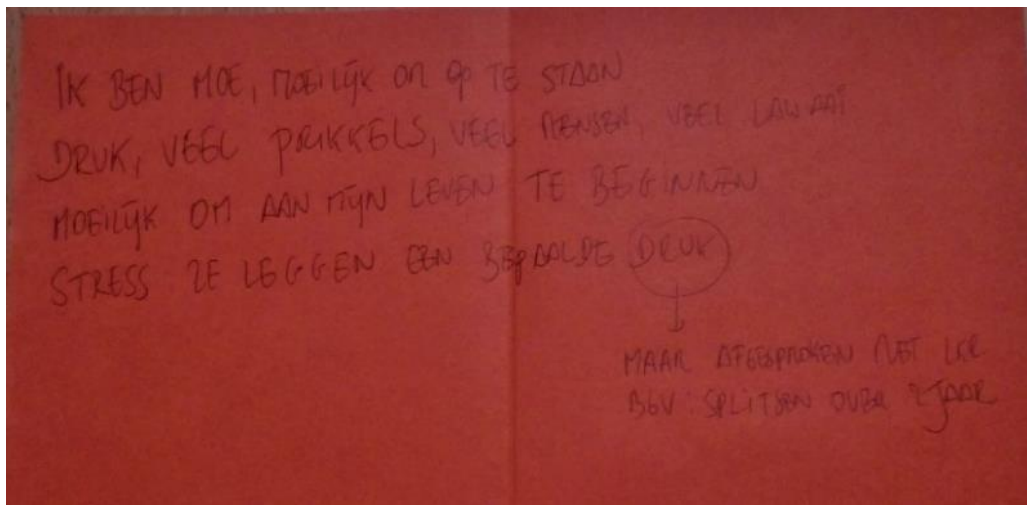 IK BEN MOE, MOEILIJK OM OP TE STAAN
DRUK, VEEL PRIKKELS, VEEL MENSEN, VEEL LAWAAI
MOEILIJK OM AAN MIJN LEVEN TE BEGINNEN
STRESS ZE LEGGEN EEN BEPAALDE DRUK
MAAR AFGESPROKEN MET LKR
BGV: SPLITSEN OVER 2 JAAR